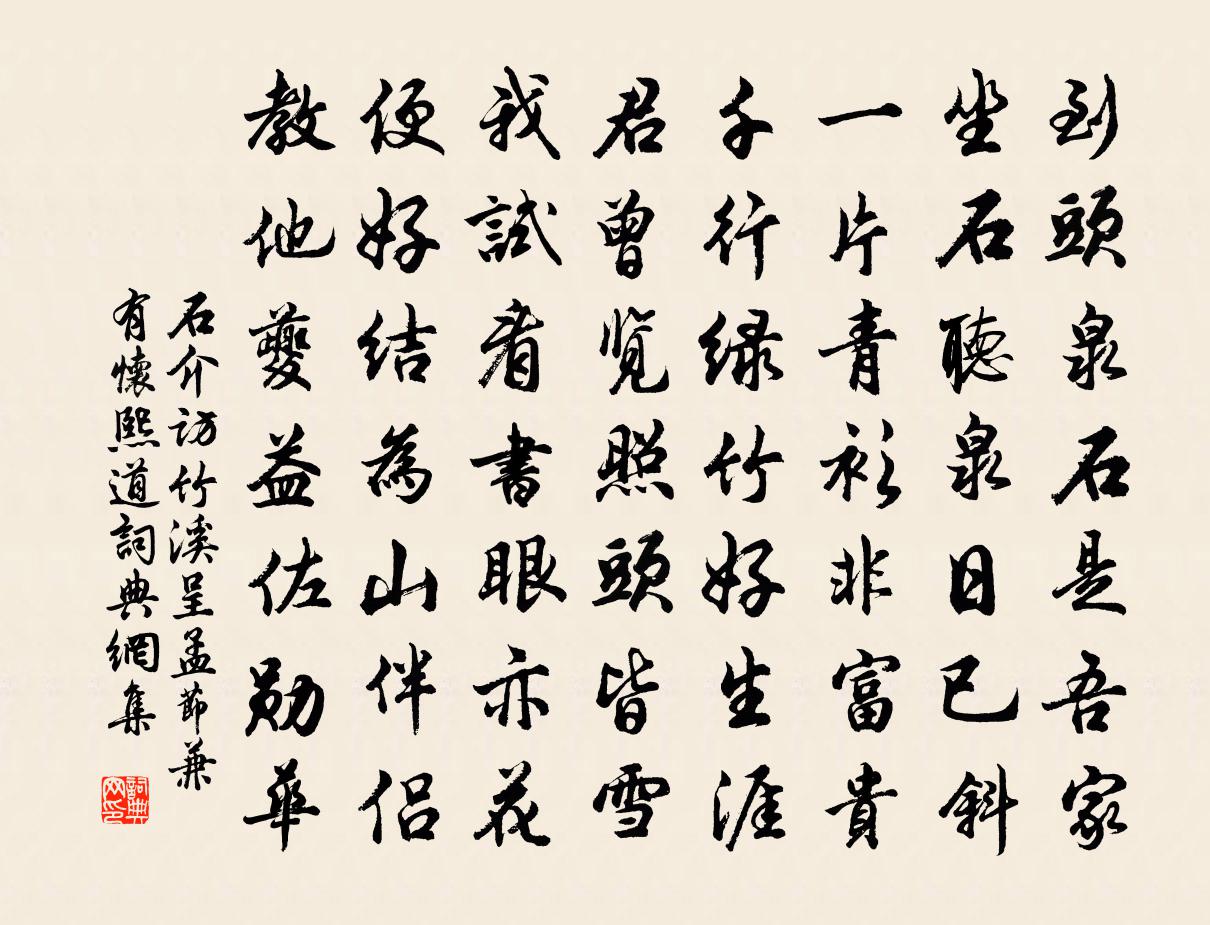 到頭泉石是吾家
坐石聽泉日已斜
一片青衫非富貴
千行绿竹好生涯
君曾览照頭皆雪
我試看書眼亦花
便好结為山伴侣
教他夔益佐勋華
石介訪竹溪呈孟節兼
有懷熙道詞典網集
詞典网印